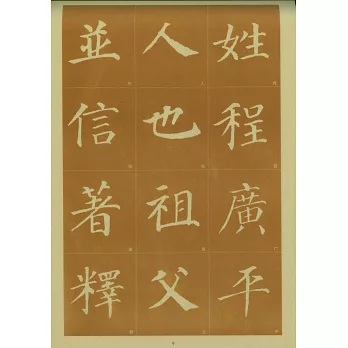 姓程廣平
人也祖父
並信著釋